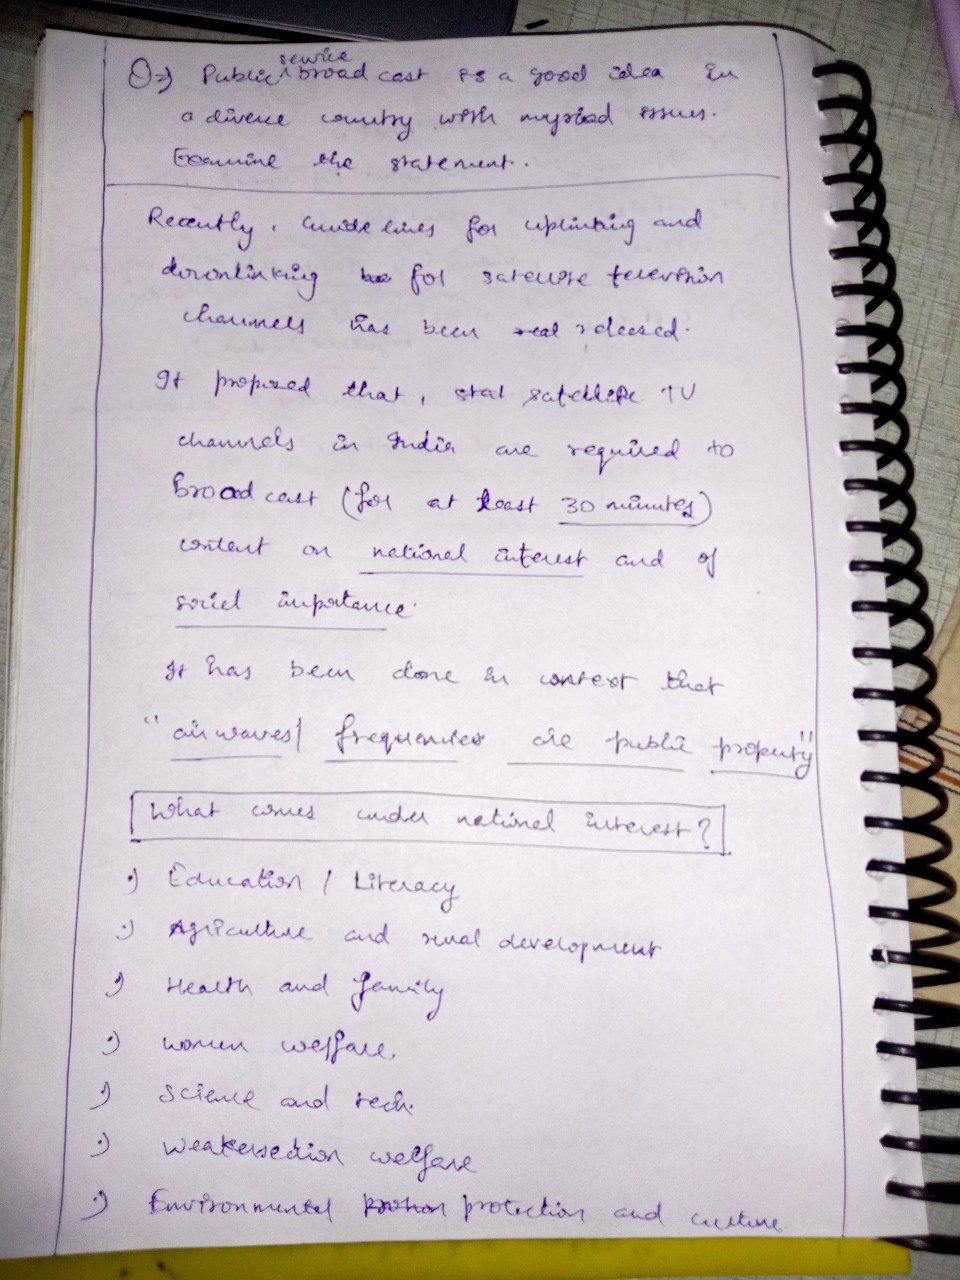 Q=) Public service broad cast is a good idea in
a diverse country with myriad issues.
Examine the statement.
Recently, Guidelines for uplinking and
downlinking for satellite television
channels has been released.
It proposed that, satellite TV
channels in India are required to
Broad cast (for at least 30 minutes)
content on national interest and of
social importance.
It has been done in context that
"airwaves/ frequencies are public property"
What comes under national interest?
·) Education / Literacy
·) Agriculture and rural development
·) Health and family
·) women welfare.
·) Science and tech.
·) Weakersection welfare
·) Environmental protection and culture.